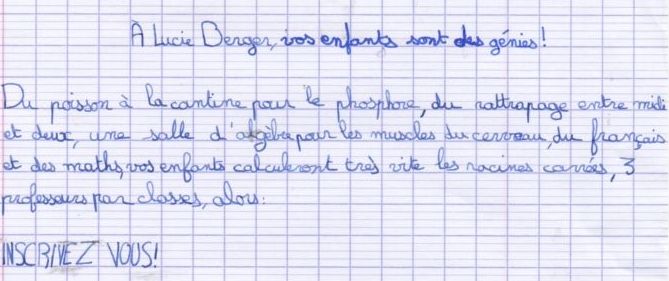 À Lucie Berger, vos enfants sont des génies!
Du poisson à la cantine pour le phosphore, du rattrapage entre midi
et deux, une salle d'algèbre pour les muscles du cerveau, du français
et des maths, vos enfants calculeront très vite les racines carrés, 3
professeurs par classes, alors:
INSCRIVEZ VOUS!